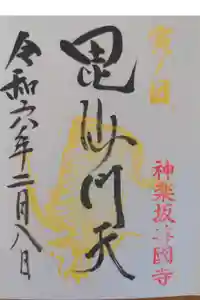 寅ノ日
神楽坂善國寺
毘沙門天
令和六年二月八日